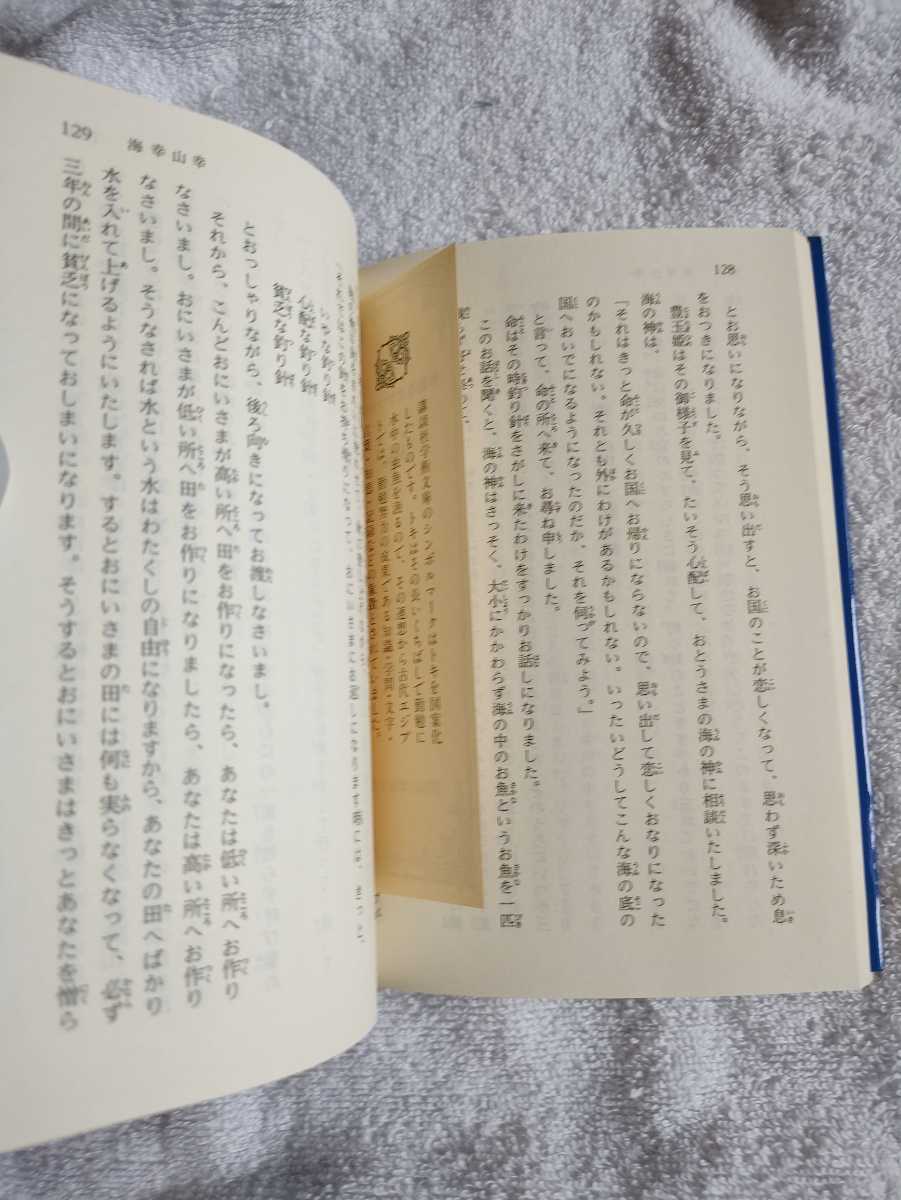 128
とお思いになりながら、そう思い出すと、お国のことが恋しくなって、思わず深いため息
をおつきになりました。
豊玉姫はその御様子を見て、たいそう心配して、おとうさまの海の神に相談いたしました。
海の神は、
「それはきっと命が久しくお国へお帰りにならないので、思い出して恋しくおなりになった
のかもしれない。それとも外にわけがあるかもしれない。いったいどうしてこんな海の底の
国へおいでになるようになったのだか、それを伺ってみよう。」
と言って、命の所へ来て、お尋ね申しました。
命はその時釣り針をさがしに来たわけをすっかりお話しになりました。
このお話を聞くと、海の神はさっそく、大小にかかわらず海の中のお魚というお魚を一匹
講談社学術文庫のシンボルマークはトキを図案化
したものです。トキはその長いくちばしで勤勉に
水中の虫魚を漁るので、その連想から古代エジプ
トでは、勤勉努力の成果である知識・学問・文字・
129 海幸山幸
いやな釣り針
心配な釣り針
貧乏な釣り針
とおっしゃりながら、後ろ向きになってお渡しなさいまし。
それから、こんどおにいさまが高い所へ田をお作りになったら、あなたは低い所へお作り
なさいまし。おにいさまが低い所へ田をお作りになりましたら、あなたは高い所へお作り
なさいまし。そうなされば水という水はわたくしの自由になりますから、あなたの田へばかり
水を入れて上げるようにいたします。するとおにいさまの田には何も実らなくなって、必ず
三年の間に貧乏になっておしまいになります。そうするとおにいさまはきっとあなたを憎ら